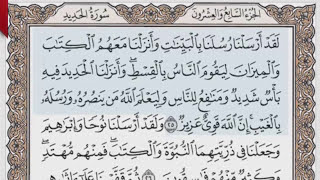 الجزء السابع والعشرون
سورة الحديد
لَقَدْ أَرْسَلْنَا رُسُلَنَا بِالْبَيِّنَاتِ وَأَنزَلْنَا مَعَهُمُ الْكِتَابَ
وَالْمِيزَانَ لِيَقُومَ النَّاسُ بِالْقِسْطِ وَأَنزَلْنَا الْحَدِيدَ فِيهِ
بَأْسٌ شَدِيدٌ وَمَنَافِعُ لِلنَّاسِ وَلِيَعْلَمَ اللَّهُ مَن يَنصُرُهُ وَرُسُلَهُ
بِالْغَيْبِ إِنَّ اللَّهَ قَوِيٌّ عَزِيزٌ ٢٥ وَلَقَدْ أَرْسَلْنَا نُوحًا وَإِبْرَاهِيمَ
وَجَعَلْنَا فِي ذُرِّيَّتِهِمَا النُّبُوَّةَ وَالْكِتَابَ فَمِنْهُم مُّهْتَدٍ
وَكَثِيرٌ مِّنْهُمْ فَاسِقُونَ ٢٦ ثُمَّ قَفَّيْنَا عَلَىٰ آثَارِهِم